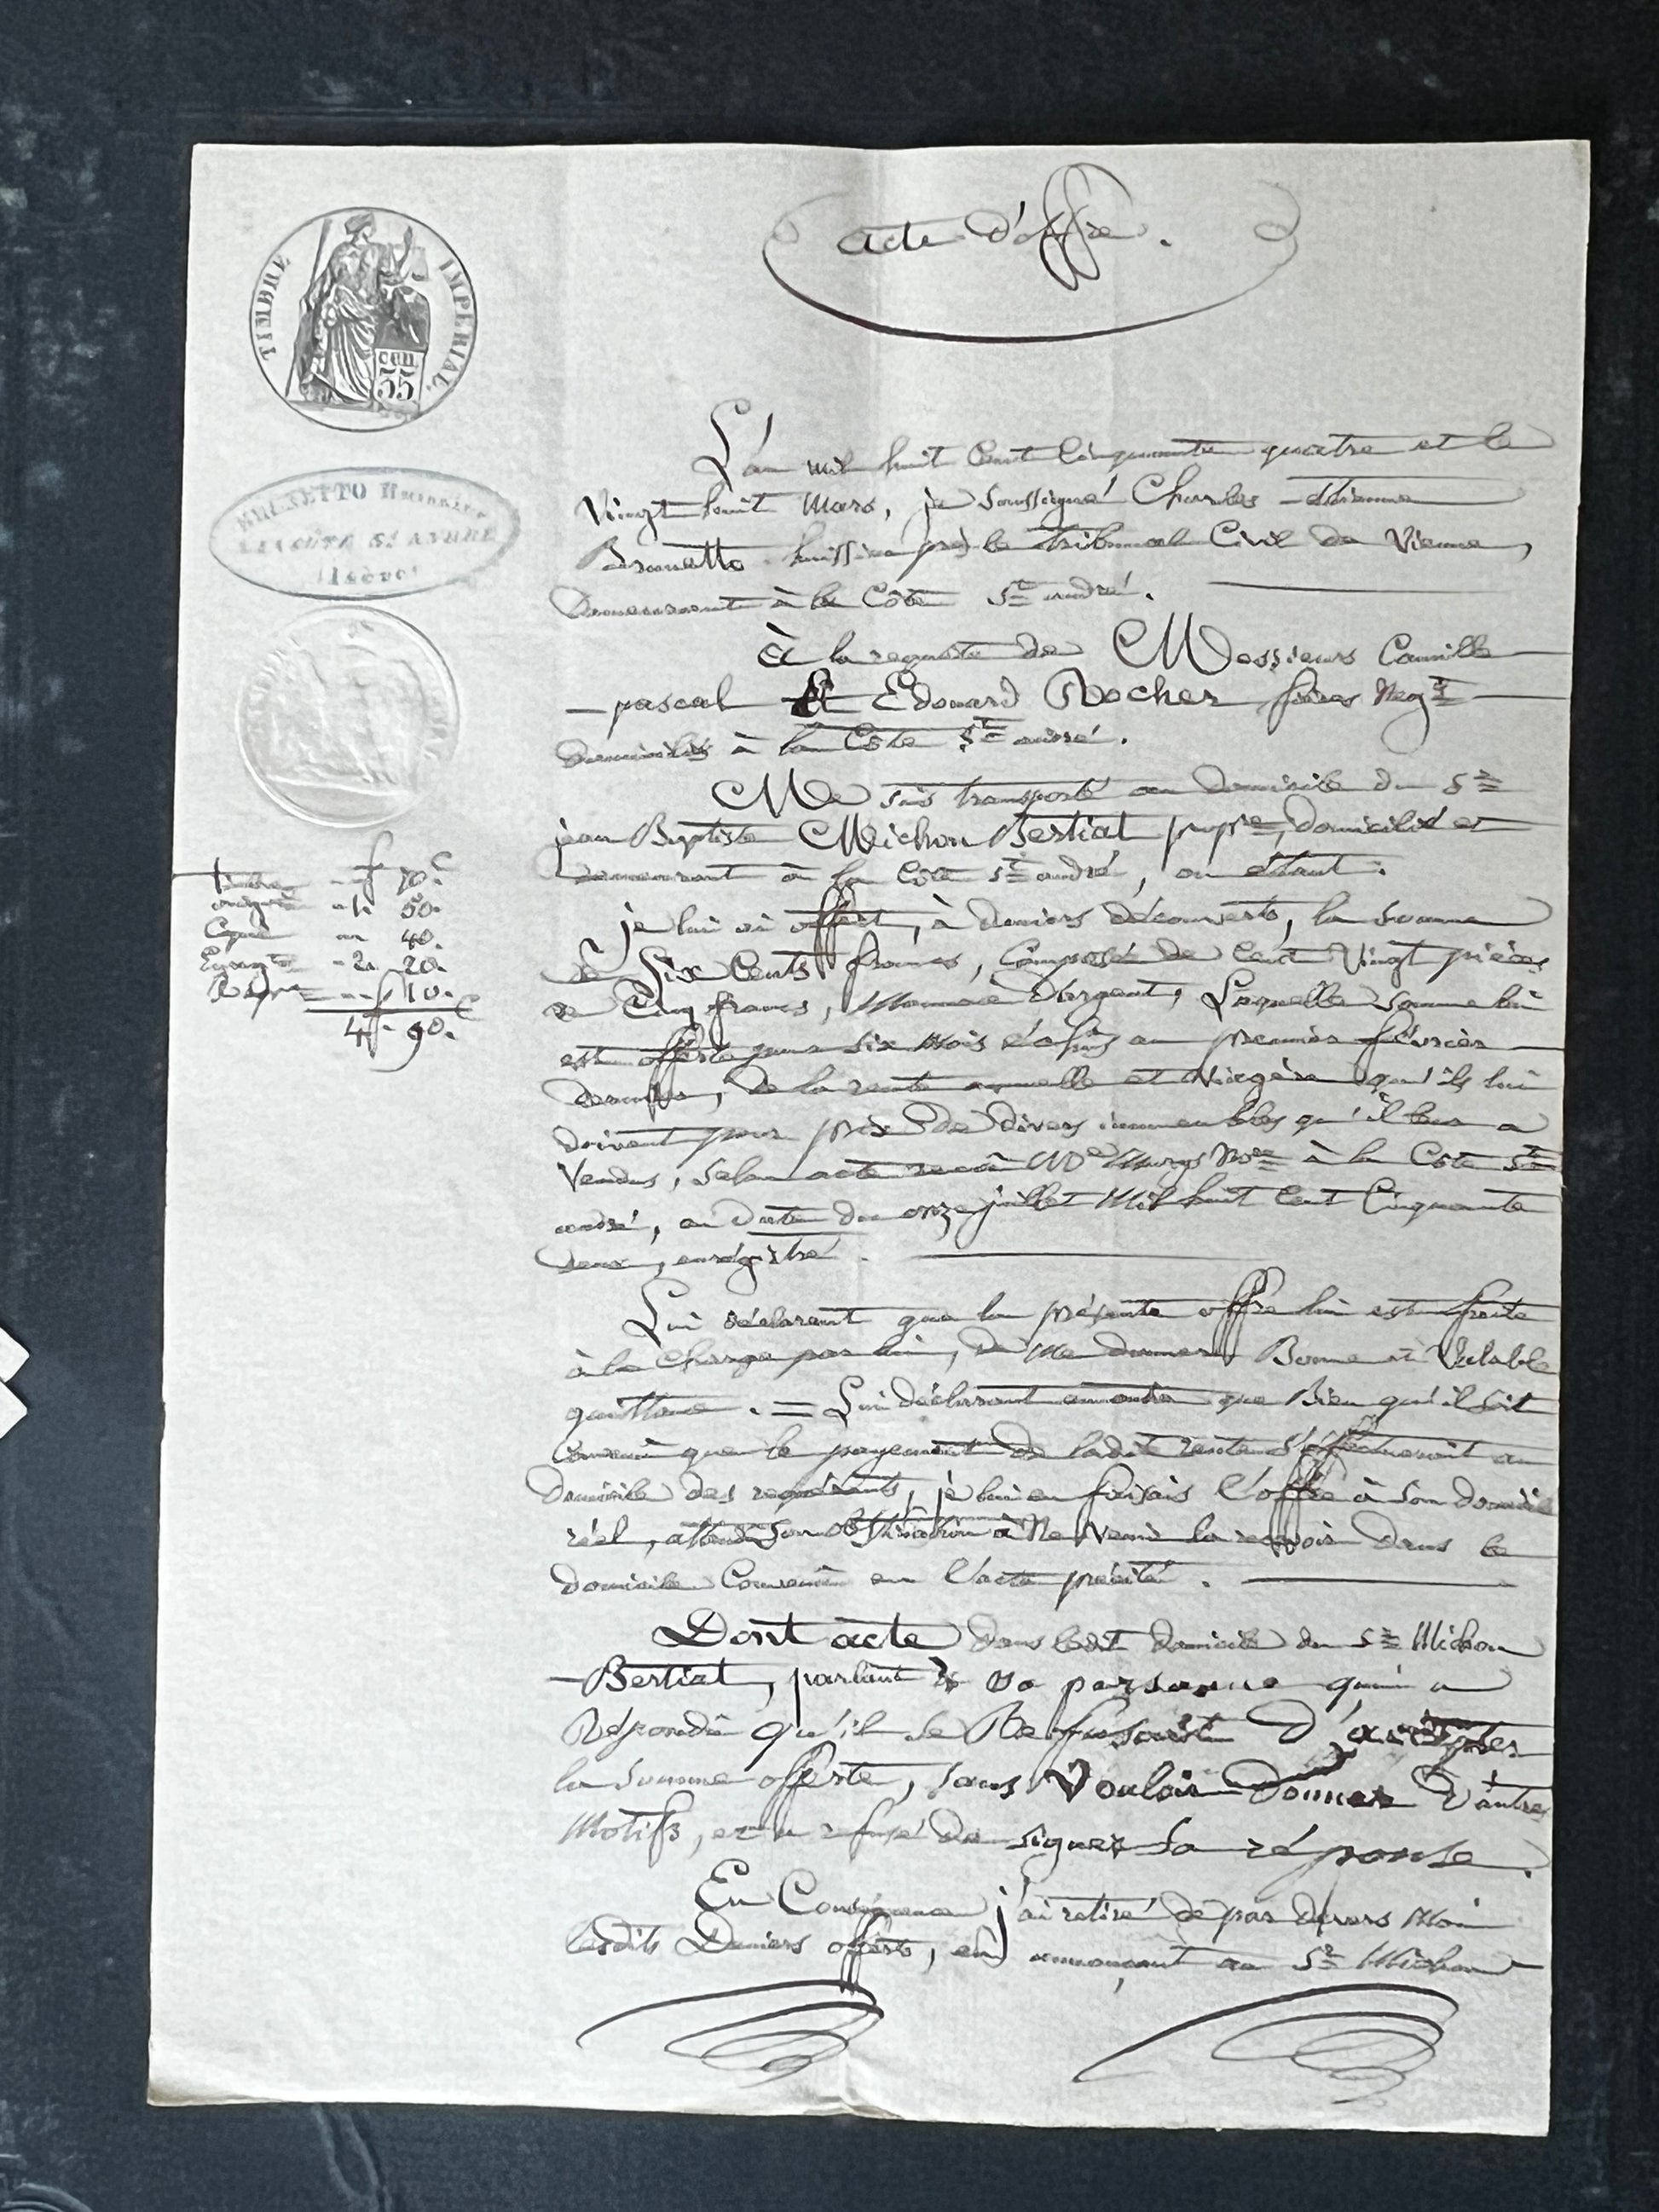 acte d'offre.
TIMBRE IMPERIAL.
cen
35
L'an mil huit Cent Cinquante quatre et le
Vingt huit Mars, je soussigné Charles - étienne
Brunetto huissier près le tribunal Civil de Vienne,
Demeurant à la Côte St andré.
BRUNETTO Huissier
LA COTE ST ANDRE
(Isère)
à la requête de Messieurs Camille
pascal Et Edouard Rocher frères Negts
domiciliés à la Côte St andré.
Me suis transporté au domicile du Sr
jean Baptiste Michon Bertiat propre, domicilié et
demeurant à la Côte St andré, ou étant.
f c
timbre - 70.
original - 1. 50.
Copie 40.
Enregt - 2. 20.
Reppre - 10.
4f. 90.
je lui ai offert, à deniers découverts, la somme
de Six Cents francs, Composée de Cent Vingt pièces
de Cinq francs, Monnaie D'argent, Laquelle somme lui
est offerte pour six mois échus au premier février
dernier, de la rente annuelle et Viagère qu'ils lui
doivent pour prix de divers immeubles qu'il leur a
Vendus, selon acte reçu Me Murys Nre à la Côte St
andré, en date du onze juillet Mil huit Cent Cinquante
deux, enrégistré.
Lui déclarant que la présente offre lui est faite
à la Charge par lui, de Me donner Bonne et Valable
quittance. = Lui déclarant en outre que Bien qu'il soit
Convenu que le payement de ladite rente s'effectueroit au
domicile des requérants, je lui en faisais l'offre à son domicile
réel, attendu son obstination à Ne Venir la recevoir dans le
domicile Convenu en l'acte précité.
Dont acte dans ledit domicile du Sr Michon
Bertiat, parlant à sa personne qui a
Répondu qu'il se Refusait D'accepter
la somme offerte, sans Vouloir Donner D'autres
Motifs, et a refusé de signer sa réponse.
En Conséquence j'ai retiré de par devers Moi
lesdits Deniers offerts, en annonçant au Sr Michon